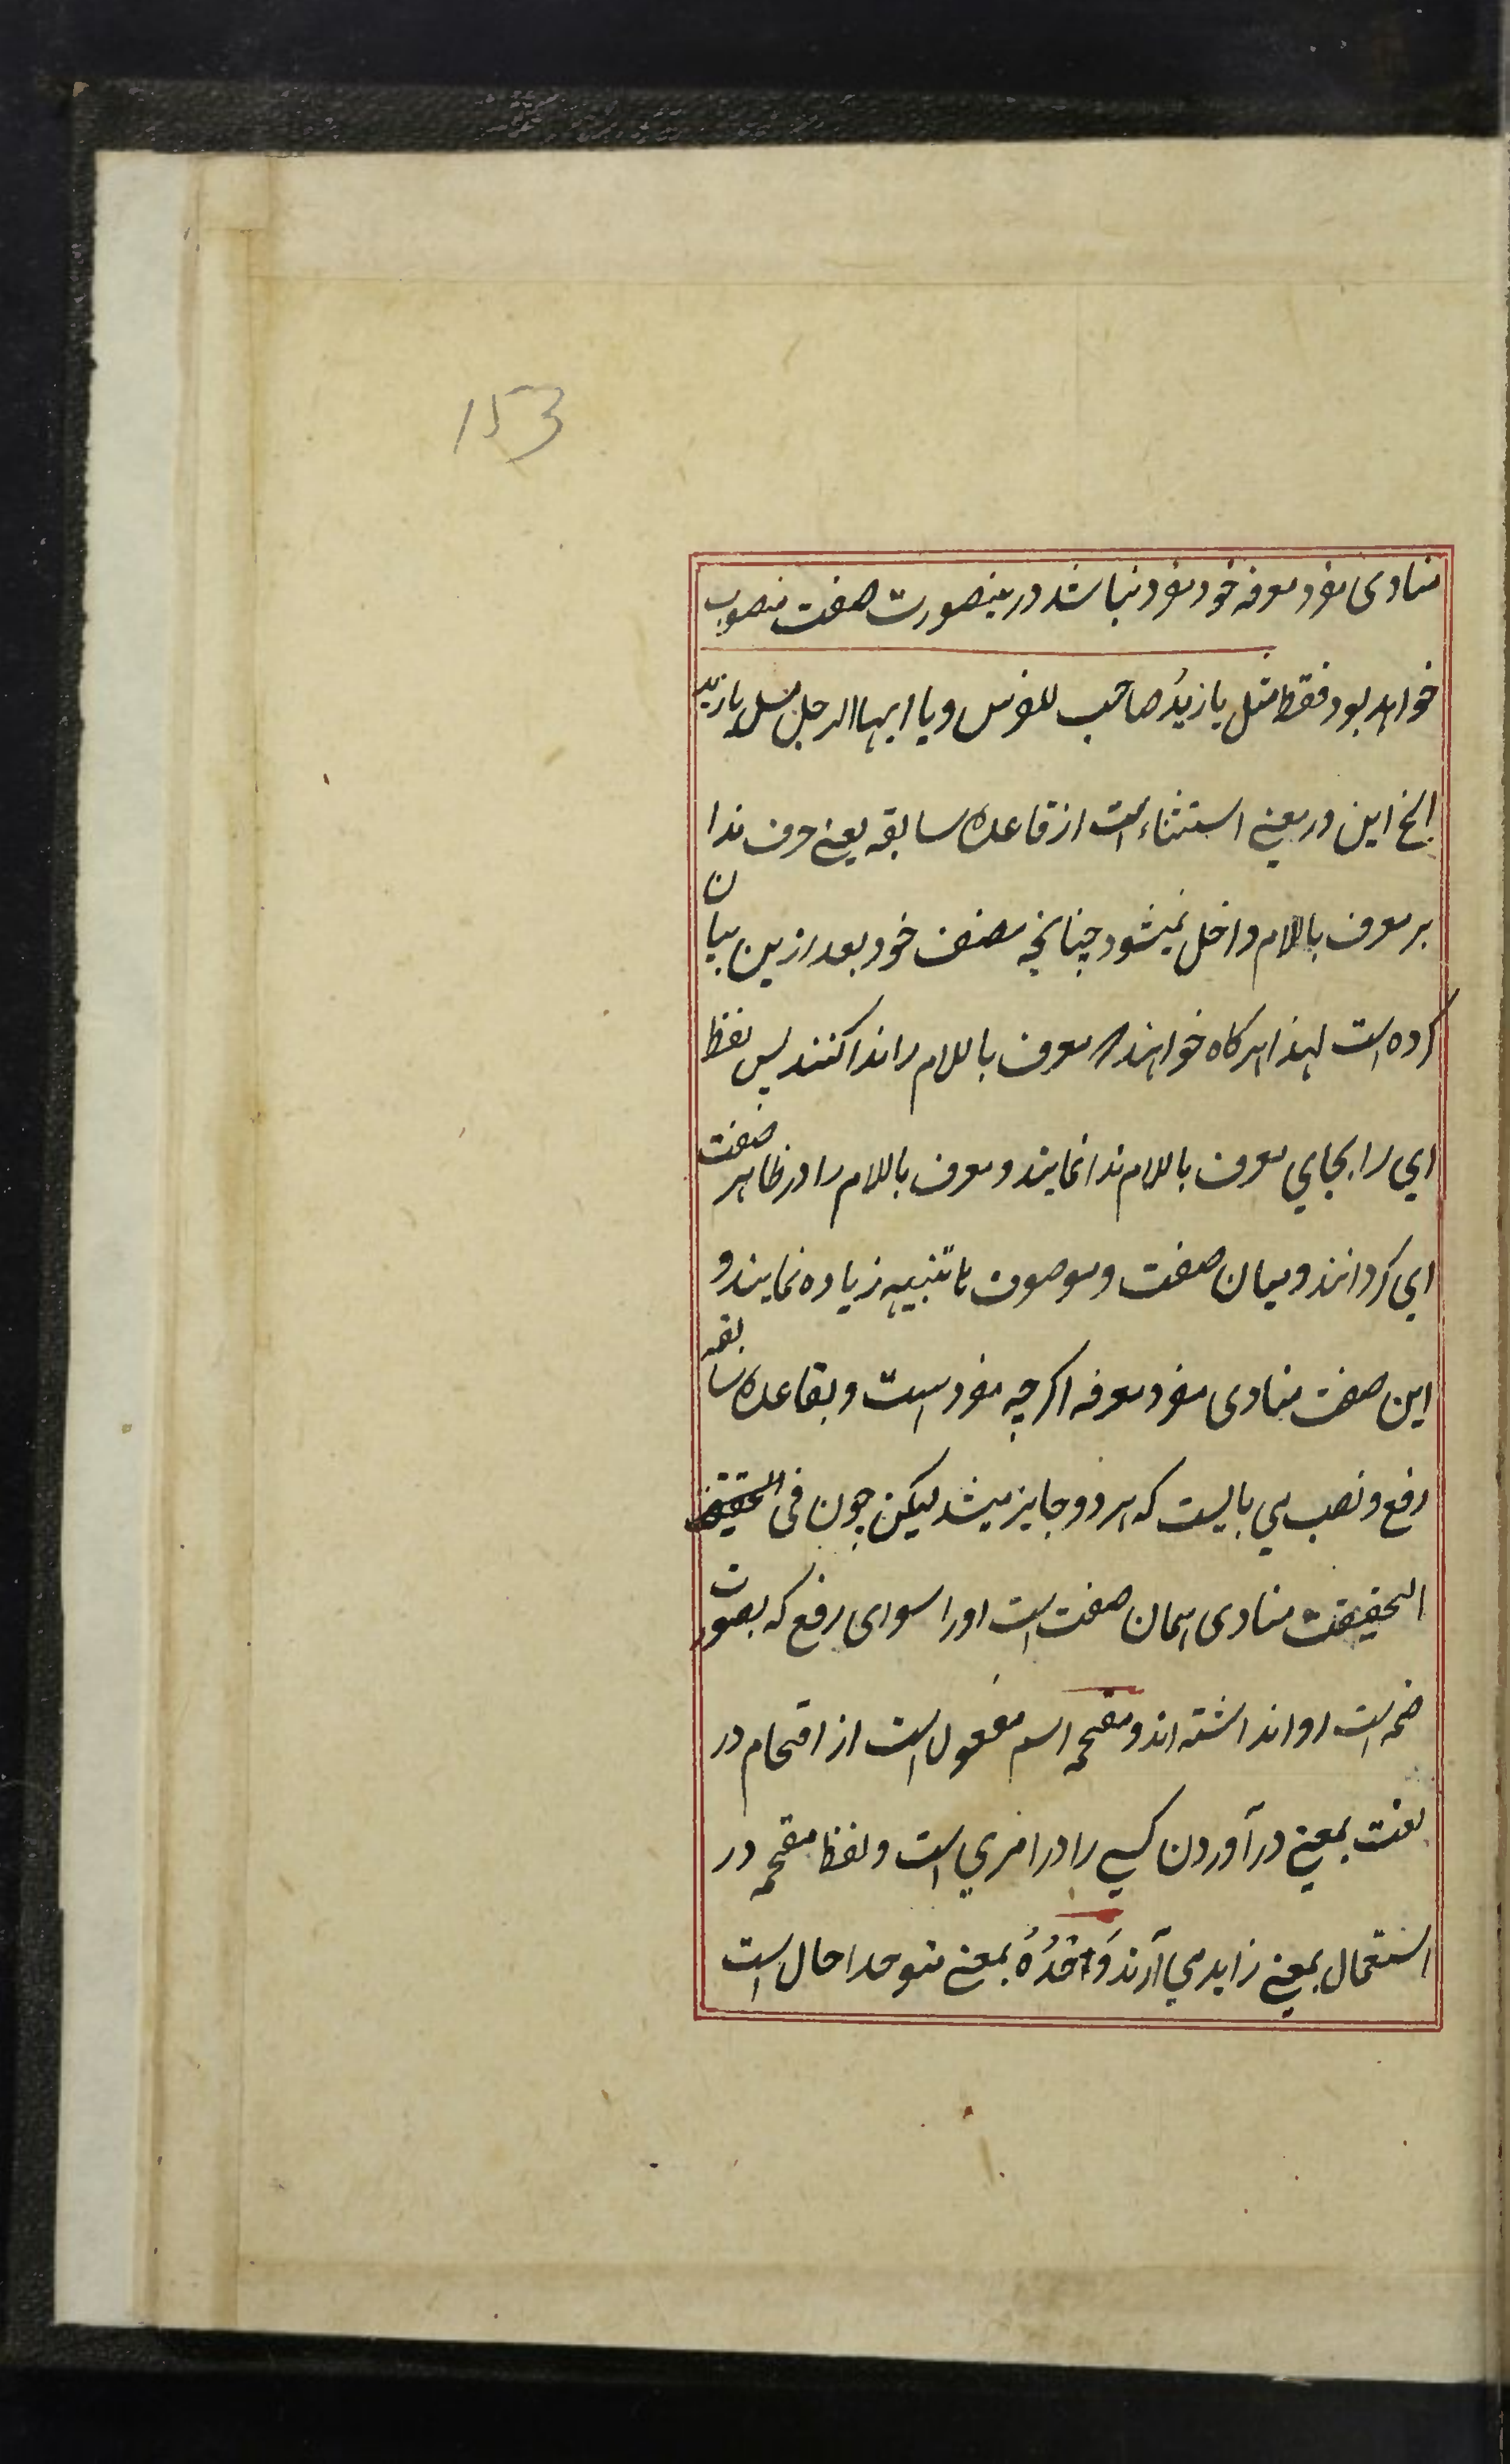 153
منادی مفرد معرفه خود مفرد نباشد درینصورت صفت منصوب
خواهد بود فقط مثل یا زیدُ صاحب الفرس و یا ایها الرجل مثل یا زید
الخ این در معنے استثناء است از قاعده سابقه یعنے حرف ندا
بر معرف باللام داخل نمیشود چنانچه مصنف خود بعد ازین بیان
کرده است لهذا هرکاه خواهند معرف باللام را ندا کنند پس لفظ
ای را بجای معرف باللام ندا نمایند و معرف باللام را در ظاهر صفت
ای کردانند و میان صفت و موصوف ها تنبیه زیاده نمایند و
این صفت منادی مفرد معرفه اکرچه مفرد است و بقاعده سابقه
رفع و نصب می بایست که هر دو جایز میشد لیکن چون فی الحقیقت
الحقیقت منادی همان صفت است اورا سوای رفع که بصورت
ضمه است روا نداشته اند و مقحمه اسم مفعول است از اقحام در
لغت بمعنے در آوردن کسے را در امری است و لفظ مقحمه در
استعمال بمعنے زاید می آرند وَحْدُهُ بمعنے متوحدا حال است